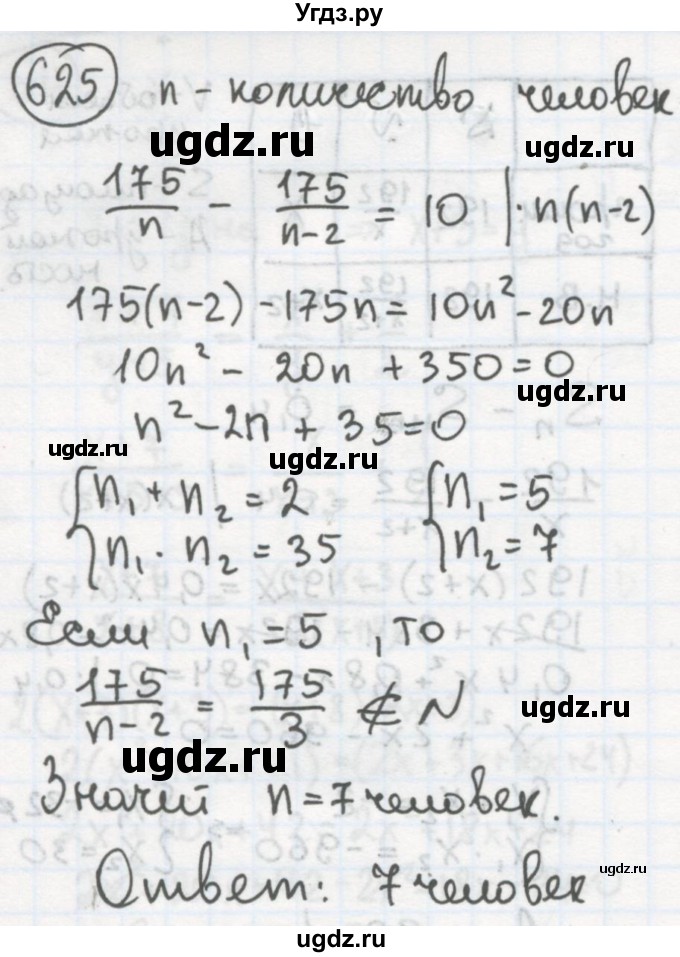 Угдз.ру
625 n - количество человек
ugdz.ru ugdz.ru
175/n - 175/(n-2) = 10 | · n(n-2)
175(n-2) - 175n = 10n² - 20n
10n² - 20n + 350 = 0
ugdz.ru
n² - 2n + 35 = 0
ugdz.ru ugdz.ru
{ n₁ + n₂ = 2 { n₁ = 5
n₁ · n₂ = 35 n₂ = 7
Если n₁ = 5, то
175/(n-2) = 175/3 ∉ N
ugdz.ru
ugdz.ru
Значит n = 7 человек.
Ответ: 7 человек
ugdz.ru
ugdz.ru